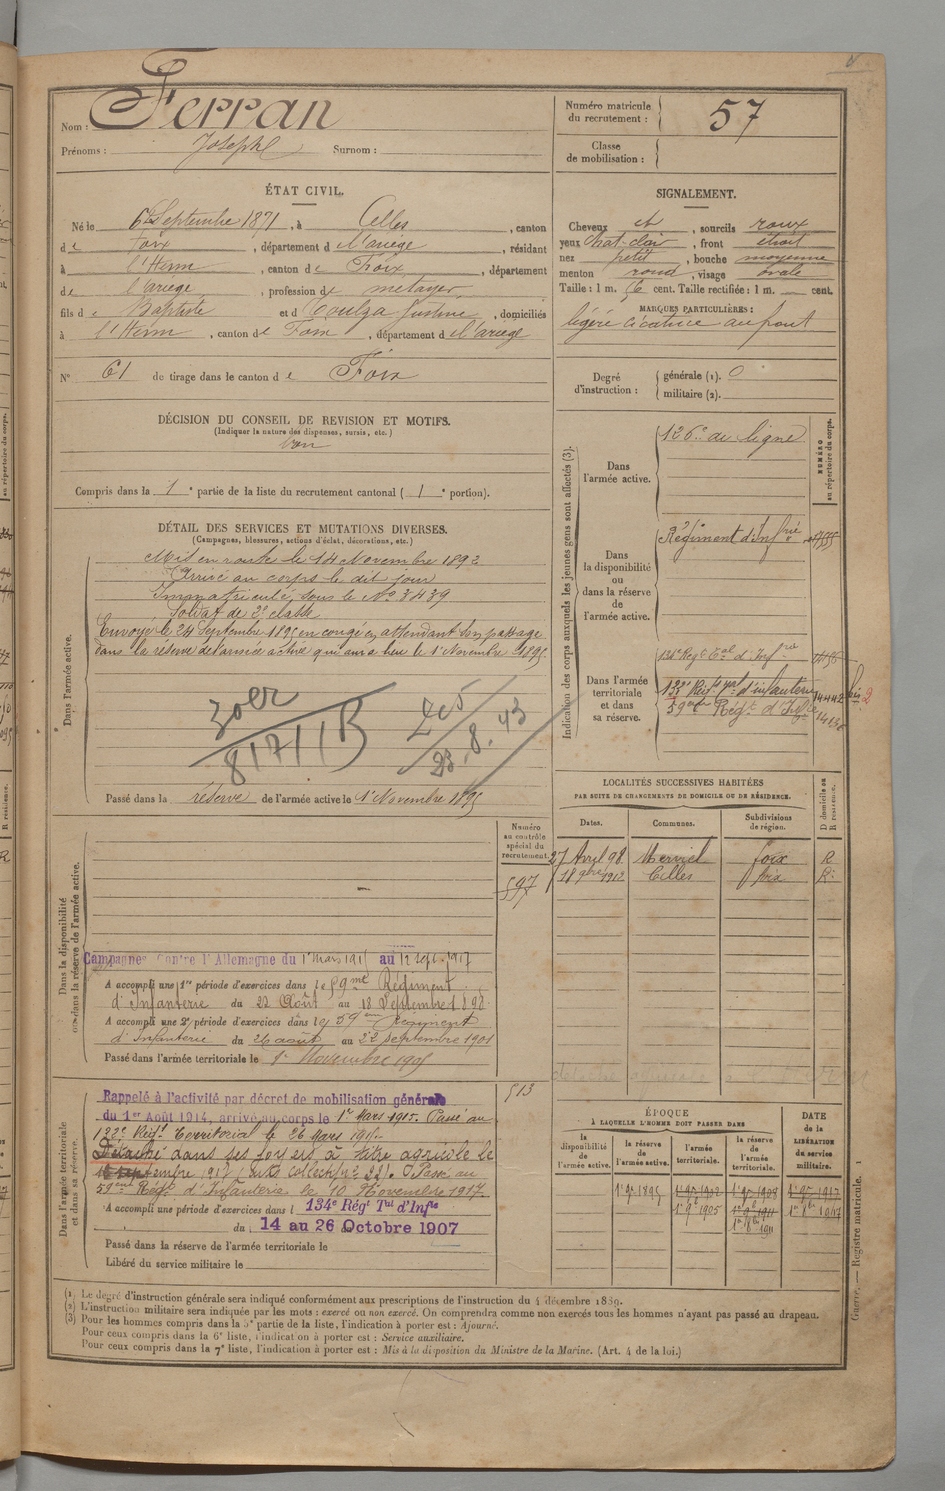 Nom : Ferran
Prénoms : Joseph Surnom :
Numéro matricule du recrutement : 57
Classe de mobilisation :
ÉTAT CIVIL.
Né le 6 Septembre 1871, à Celles, canton
de Foix, département de l'ariège, résidant
à l'Herm, canton de Foix, département
de l'ariège, profession de métayer
fils de Baptiste et de Toulza Justine, domiciliés
à l'Herm, canton de Foix, département de l'ariège
N° 61 de tirage dans le canton de Foix
SIGNALEMENT.
Cheveux et, sourcils roux
yeux chat-clair, front étroit
nez petit, bouche moyenne
menton rond, visage ovale
Taille : 1 m. 56 cent. Taille rectifiée : 1 m. cent.
MARQUES PARTICULIÈRES :
légère cicatrice au front
Degré d'instruction : générale (1). 0
militaire (2).
DÉCISION DU CONSEIL DE REVISION ET MOTIFS.
(Indiquer la nature des dispenses, sursis, etc.)
bon
Compris dans la 1e partie de la liste du recrutement cantonal (1e portion).
DÉTAIL DES SERVICES ET MUTATIONS DIVERSES.
(Campagnes, blessures, actions d'éclat, décorations, etc.)
Dans l'armée active.
Mis en route le 14 Novembre 1892
Arrivé au corps le dit jour
Immatriculé sous le N° 3439
Soldat de 2e classe
Envoyé le 24 Septembre 1895 en congé en attendant son passage
dans la réserve de l'armée active qui aura lieu le 1er Novembre 1895
23.8.43
Passé dans la réserve de l'armée active le 1er Novembre 1895
Indication des corps auxquels les jeunes gens sont affectés (3).
NUMÉRO au répertoire du corps.
Dans l'armée active.
126e de ligne
Dans la disponibilité ou dans la réserve de l'armée active.
Régiment d'Infrie
Dans l'armée territoriale et dans sa réserve.
134e Régt Tal d'Infrie
133e Régt Tal d'infanterie 14442 bis 2
59eme Régt d'Infie
LOCALITÉS SUCCESSIVES HABITÉES
PAR SUITE DE CHANGEMENTS DE DOMICILE OU DE RÉSIDENCE.
Dates. Communes. Subdivisions de région. D domicile ou R résidence.
27 Avril 98 Merviel foix R
18 9bre 1912 Celles foix R
Numéro au contrôle spécial du recrutement.
597
Dans la disponibilité ou dans la réserve de l'armée active.
Campagne Contre l'Allemagne du 1er mars 1915 au 12 sept. 1917
A accompli une 1re période d'exercices dans le 59me Régiment
d'Infanterie du 22 Août au 18 Septembre 1898
A accompli une 2e période d'exercices dans le 59eme Régiment
d'Infanterie du 26 août au 22 septembre 1901
Passé dans l'armée territoriale le 1er Novembre 1905
513
Dans l'armée territoriale et dans sa réserve.
Rappelé à l'activité par décret de mobilisation générale
du 1er Août 1914, arrivé au corps le 1er Mars 1915. Passé au
133e Régt Territorial le 26 Mars 1915.
Détaché dans ses foyers à titre agricole le
12 septembre 1917. Passé au
59eme Régt d'Infanterie le 10 Novembre 1917.
A accompli une période d'exercices dans l 134e Régt Tal d'Infie
du 14 au 26 Octobre 1907
Passé dans la réserve de l'armée territoriale le
Libéré du service militaire le
ÉPOQUE À LAQUELLE L'HOMME DOIT PASSER DANS
la disponibilité de l'armée active. la réserve de l'armée active. l'armée territoriale. la réserve de l'armée territoriale. DATE de la LIBÉRATION du service militaire.
1er 9bre 1895 1er 9bre 1902 1er 9bre 1908 1er 9bre 1917
1er 9bre 1905 1er 9bre 1911
(1) Le degré d'instruction générale sera indiqué conformément aux prescriptions de l'instruction du 4 décembre 1889.
(2) L'instruction militaire sera indiquée par les mots : exercé ou non exercé. On comprendra comme non exercés tous les hommes n'ayant pas passé au drapeau.
(3) Pour les hommes compris dans la 5e partie de la liste, l'indication à porter est : Ajourné.
Pour ceux compris dans la 6e liste, l'indication à porter est : Service auxiliaire.
Pour ceux compris dans la 7e liste, l'indication à porter est : Mis à la disposition du Ministre de la Marine. (Art. 4 de la loi.)
Guerre. — Registre matricule. 1